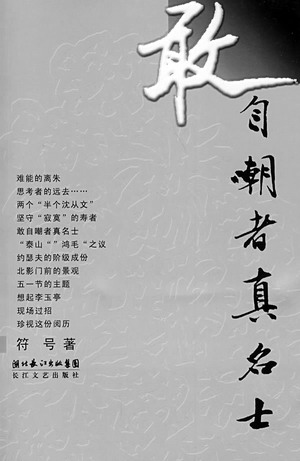 敢
自嘲者真名士
难能的离朱
思考者的远去……
两个“半个沈从文”
坚守“寂寞”的寿者
敢自嘲者真名士
“泰山“”鸿毛“之议
约瑟夫的阶级成份
北影门前的景观
五一节的主题
想起李玉亭
现场过招
珍视这份阅历
符 号 著
湖北长江出版集团
长江文艺出版社